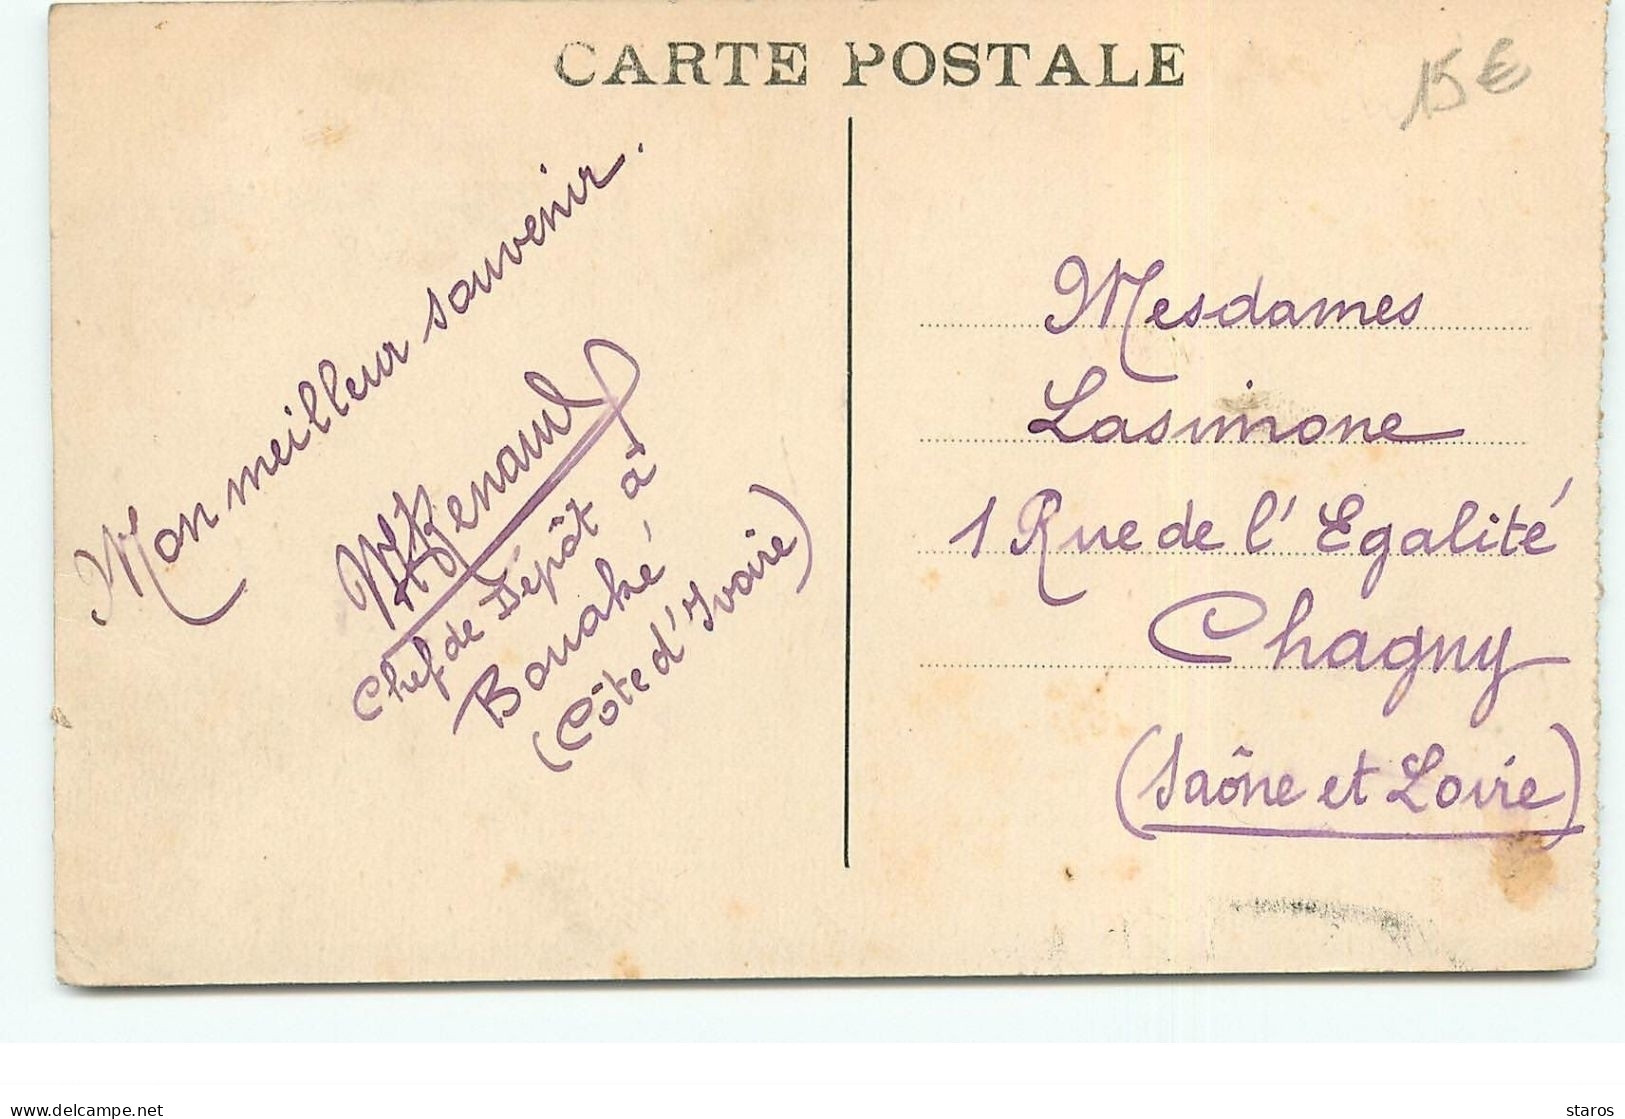 CARTE POSTALE
15 €
Mon meilleur souvenir.
Renaud
Chef de Dépôt à
Bouaké
(Côte d'Ivoire)
Mesdames
Lasimone
1 Rue de l'Egalité
Chagny
(Saône et Loire)
delcampe.net
staros